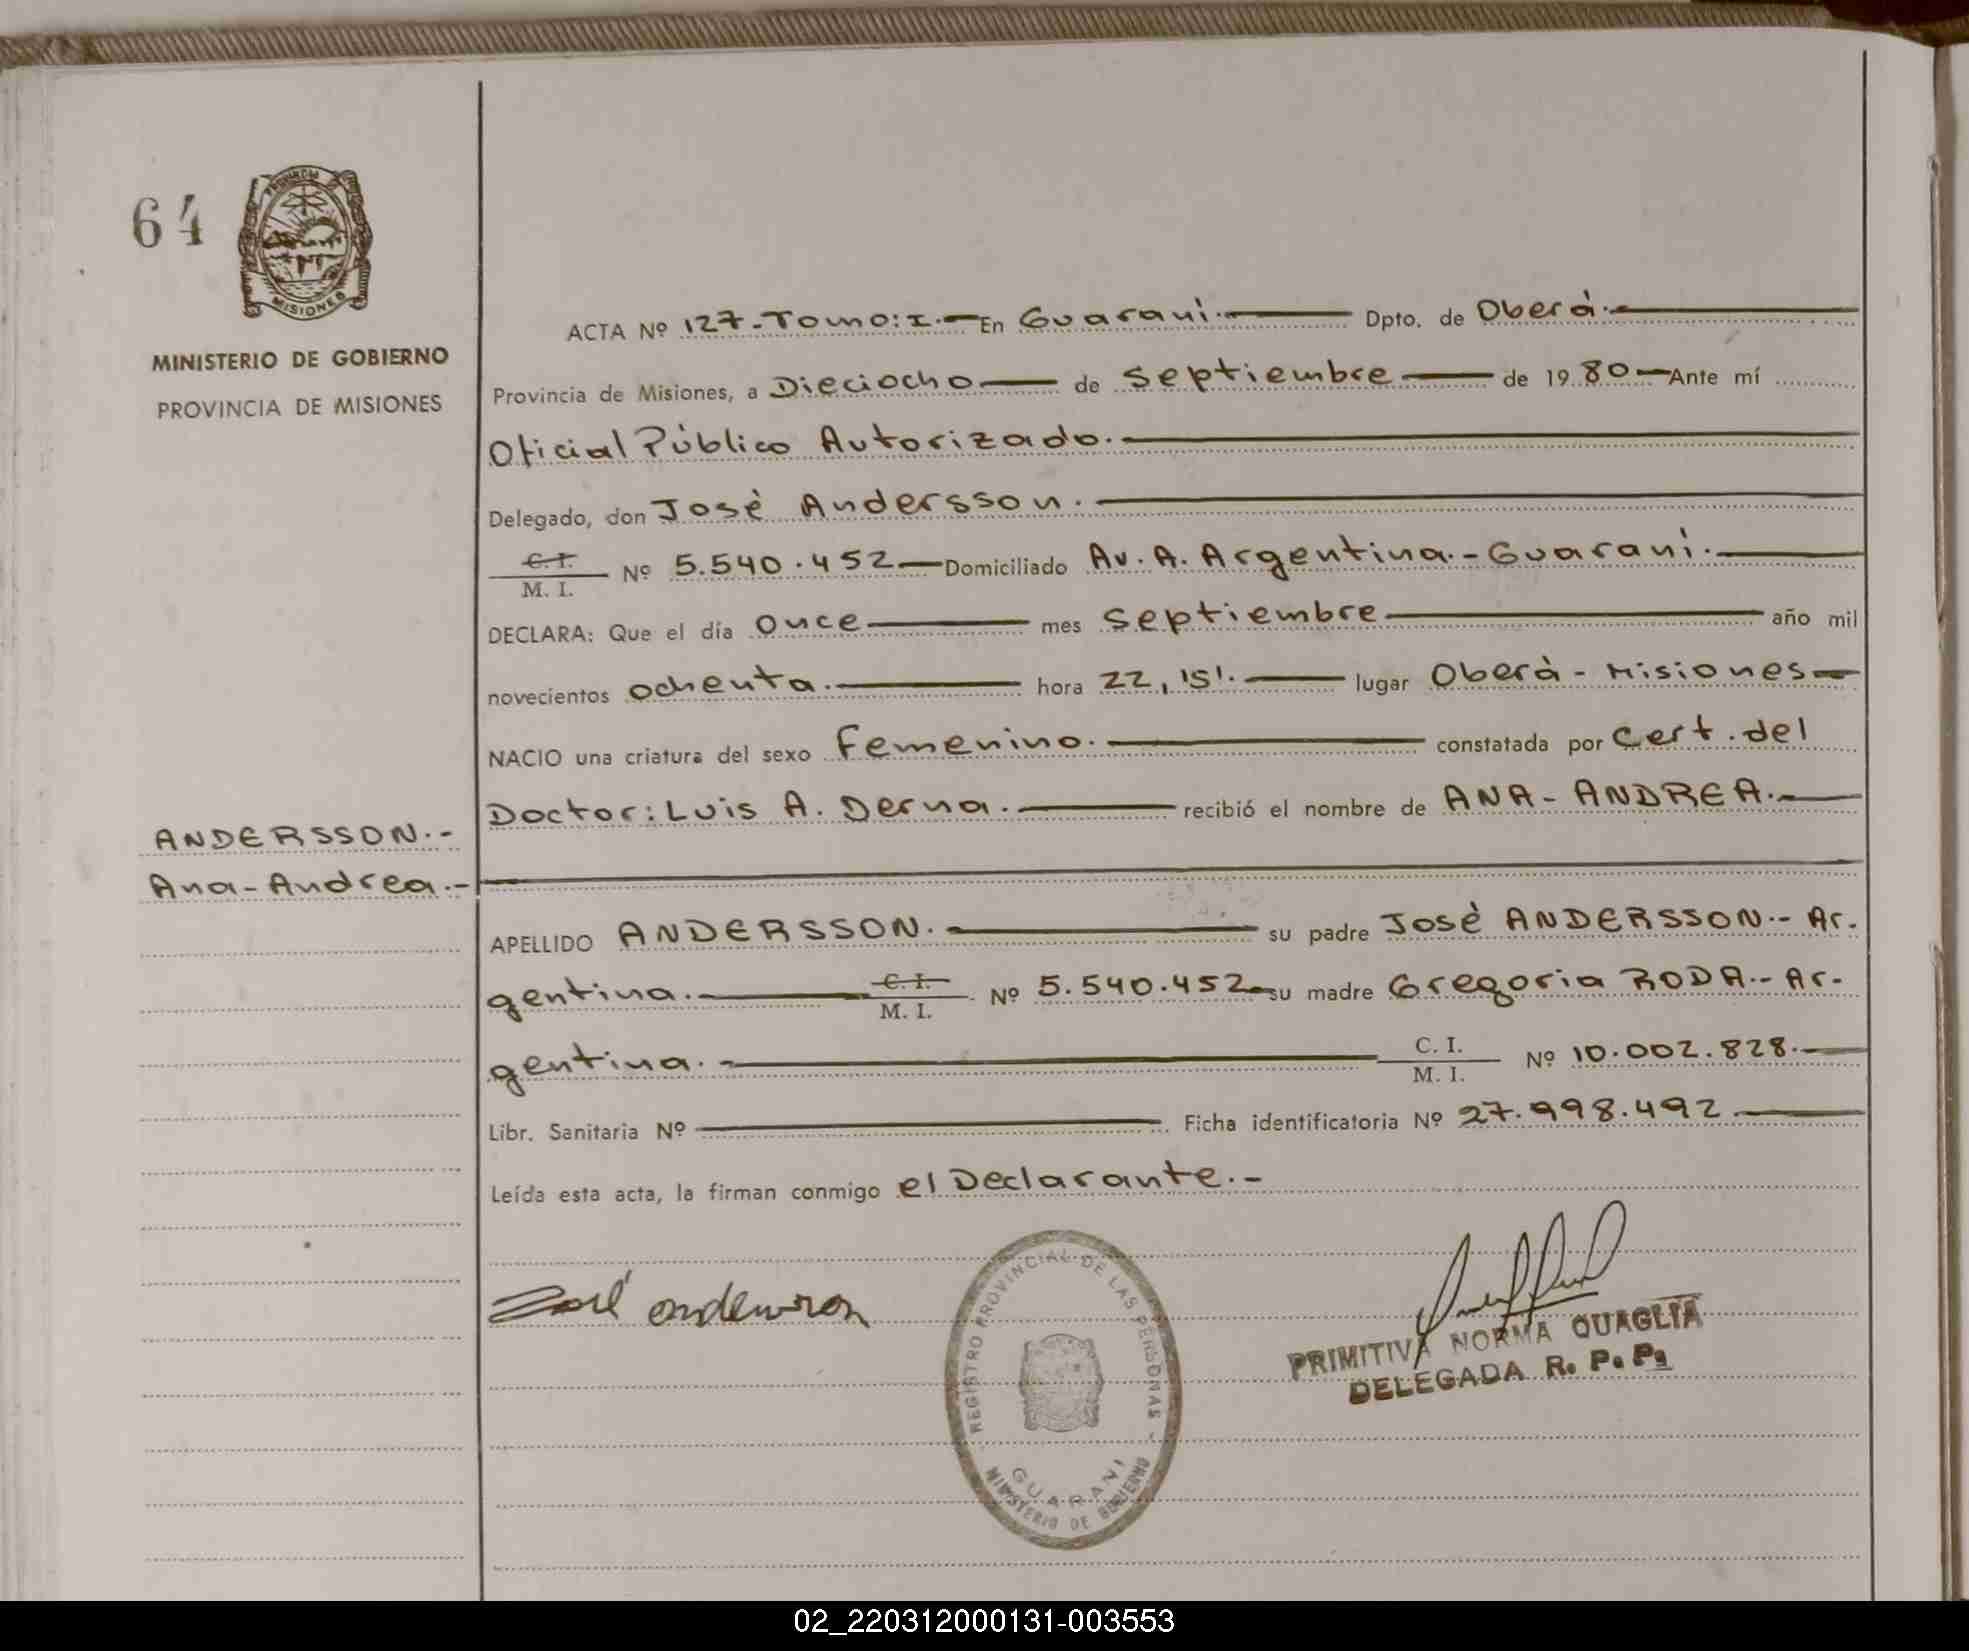 64
PROVINCIA
MISIONES
MINISTERIO DE GOBIERNO
PROVINCIA DE MISIONES
ANDERSSON.-
Ana-Andrea.-
ACTA Nº 127.-Tomo:I.- En Guaraní.- Dpto. de Oberá.-
Provincia de Misiones, a Dieciocho de septiembre de 1980 Ante mí
Oficial Público Autorizado.
Delegado, don José Andersson.
C. I.
M. I. Nº 5.540.452 Domiciliado Av. A. Argentina.-Guaraní.
DECLARA: Que el día once mes septiembre año mil
novecientos ochenta. hora 22,15'. lugar Oberá-Misiones
NACIO una criatura del sexo femenino. constatada por cert. del
Doctor: Luis A. Derna. recibió el nombre de ANA-ANDREA.-
APELLIDO ANDERSSON. su padre José ANDERSSON.- Ar.
gentina. C. I.
M. I. Nº 5.540.452 su madre Gregoria RODA.- Ar-
gentina.- C. I.
M. I. Nº 10.002.828.
Libr. Sanitaria Nº Ficha identificatoria Nº 27.998.492
Leída esta acta, la firman conmigo el Declarante.-
José andersson
REGISTRO PROVINCIAL DE LAS PERSONAS -
GUARANI
MINISTERIO DE GOBIERNO
PRIMITIVA NORMA QUAGLIA
DELEGADA R. P. P.
02_220312000131-003553